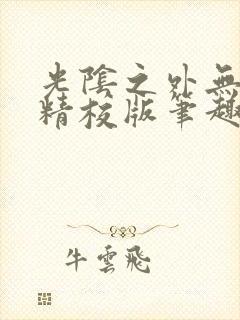 光陰之外無
精校版筆趣
牛雲飛